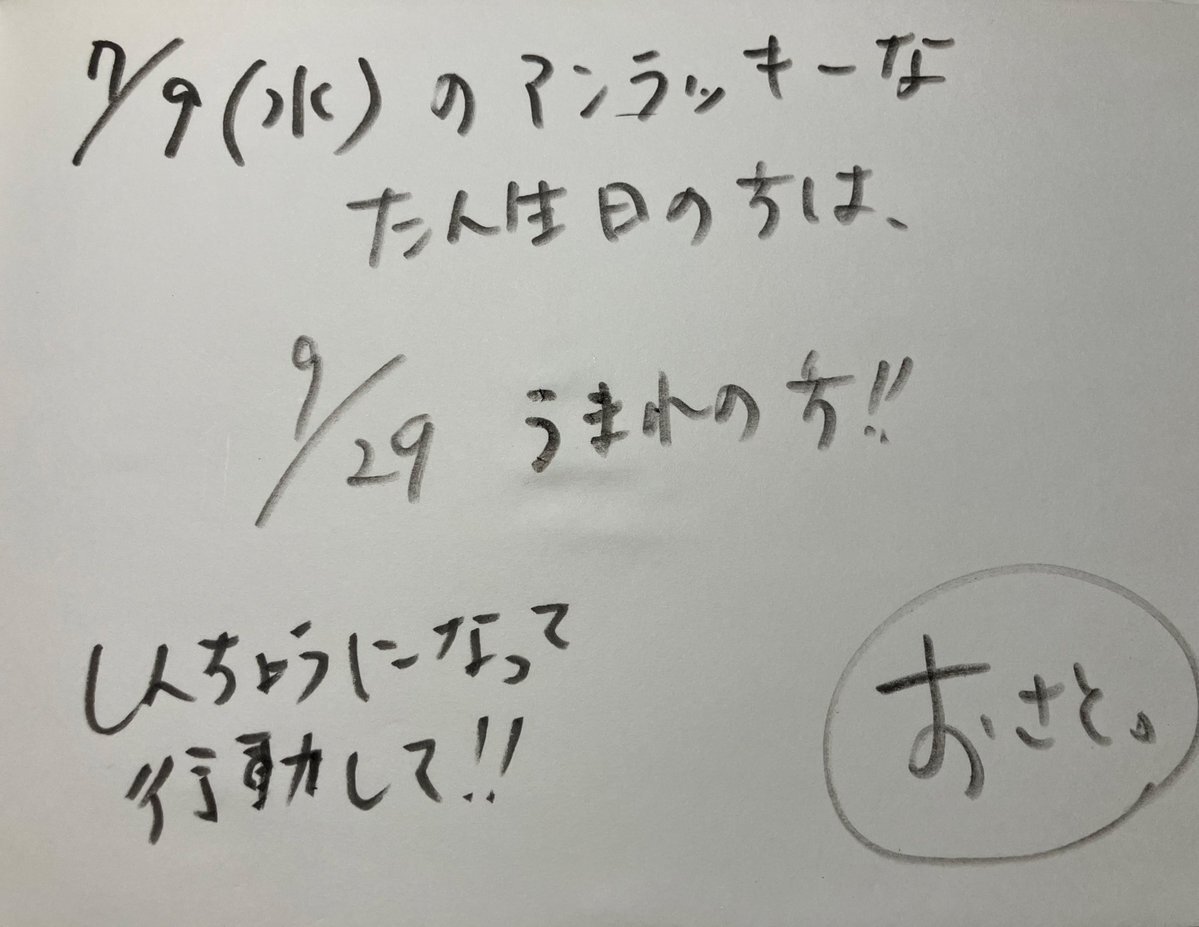 7/9(水)のアンラッキーな
たん生日の方は、
9/29 うまれの方!!
しんちょうになって
行動して!!
おさと。